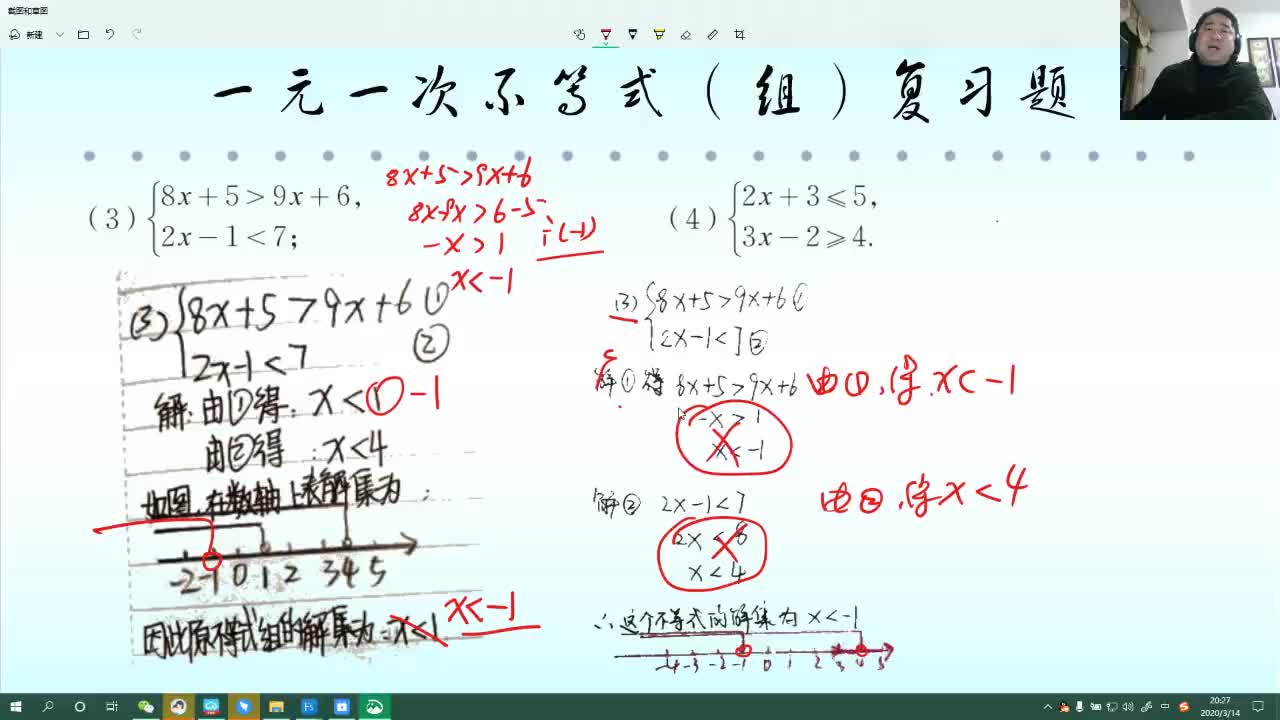 截图和草图
新建
一元一次不等式（组）复习题
(3) {8x+5>9x+6,
2x-1<7;
8x+5>9x+6
8x-9x>6-5
-x>1 ÷(-1)
x<-1
(4) {2x+3≤5,
3x-2≥4.
(3) {8x+5>9x+6 ①
2x-1<7 ②
解:由①得: x<1 -1
由②得:x<4
如图,在数轴上表解集为:
-2 -1 0 1 2 3 4 5
因此原不等式组的解集为:x<1 x<-1
(3) {8x+5>9x+6 ①
2x-1<7 ②
解①得 8x+5>9x+6 由①,得x<-1
-x>1
x<-1
解② 2x-1<7 由②,得x<4
2x<8
x<4
∴这个不等式的解集为 x<-1
-4 -3 -2 -1 0 1 2 3 4 5
Fs
中
20:27
2020/3/14